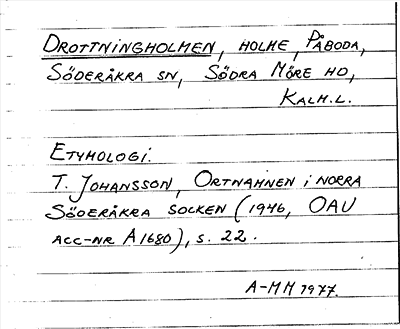 DROTTNINGHOLMEN, HOLME, PÅBODA,
SÖDERÅKRA SN, SÖDRA MÖRE HD,
KALM.L.
ETYMOLOGI.
T. JOHANSSON, ORTNAMNEN I NORRA
SÖDERÅKRA SOCKEN (1946, OAU
ACC-NR A1680), S. 22.
A-MM 1977.